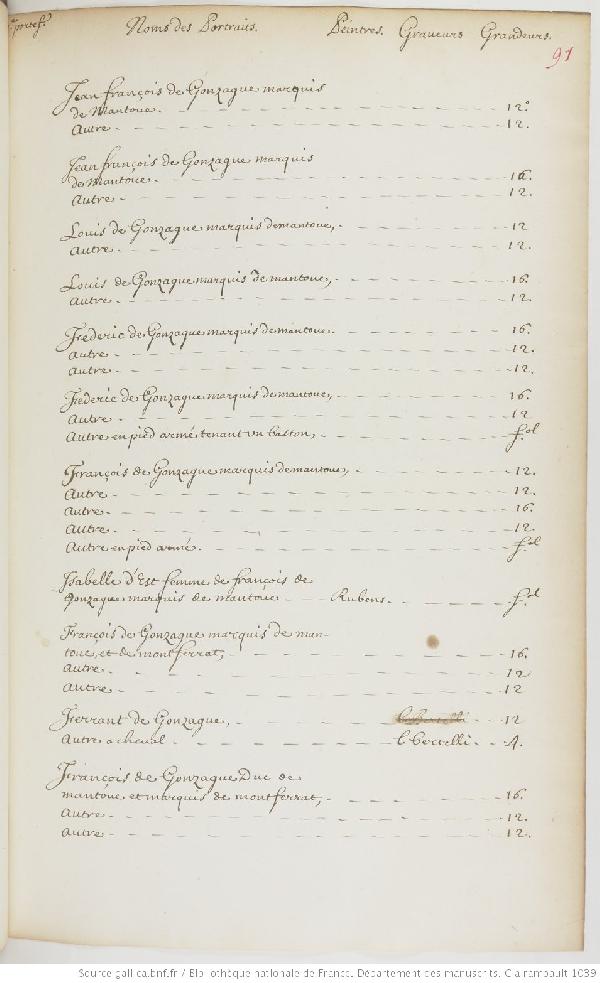 portef.
Noms des Portraits. Peintres. Graveurs Grandeurs.
91
Jean françois de Gonzague marquis
de Mantoue. 12.º
Autre. 12.
Jean françois de Gonzague marquis
de mantoüe. 16.
Autre 12.
Louis de Gonzague marquis de mantoue, 12
Autre. 12.
Louis de Gonzague marquis de mantoue, 16.
Autre. 12.
Féderic de Gonzague marquis de mantoue 16.
Autre 12.
Autre. 12.
Féderic de Gonzague marquis de mantoue, 16.
Autre. 12
Autre en pied armé tenant un baston, fol
François de Gonzague marquis de mantoue, 12.
Autre 12.
Autre. 16.
Autre 12.
Autre en pied armé. fol
Isabelle d'Est femme de françois de
Gonzague marquis de mantoüe Rubens. fol
François de Gonzague marquis de man-
toue, et de montferrat, 16.
Autre. 12
Autre. 12
Ferrant de Gonzague, l. bertelli 12
Autre a cheval l bertelli 4.
François de Gonzague Duc de
mantoüe, et marquis de montferrat, 16.
Autre. 12.
Autre 12.
Source gallica.bnf.fr / Bibliothèque nationale de France. Département des manuscrits. Clairambault 1039